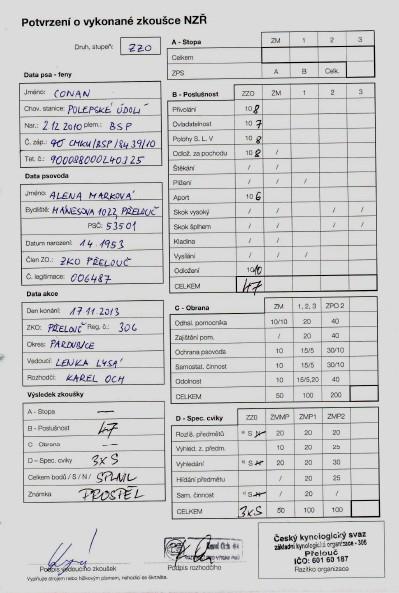 Potvrzení o vykonané zkoušce NZŘ
Druh, stupeň: ZZO
Data psa - feny
Jméno: CONAN
Chov. stanice: POLEPSKÉ ÚDOLÍ
Nar.: 2.12.2010 plem.: BSP
Č. záp.: ČMKU/BSP/8439/10
Tet. č.: 900088000240325
Data psovoda
Jméno: ALENA MARKOVÁ
Bydliště: MÁNESOVA 1022, PŘELOUČ
PSČ: 53501
Datum narození: 14. 1953
Člen ZO.: ZKO PŘELOUČ
Č. legitimace: 006487
Data akce
Den konání: 17.11.2013
ZKO: PŘELOUČ Reg. č.: 306
Okres: PARDUBICE
Vedoucí: LENKA LYSÁ
Rozhodčí: KAREL OCH
Výsledek zkoušky
A - Stopa —
B - Poslušnost 47
C - Obrana —
D – Spec. cviky 3xS
Celkem bodů / S / N / SPLNIL
Známka PROSPĚL
A - Stopa ZM 1 2 3
Celkem
ZPS A B Celk.
B - Poslušnost ZZO ZM 1 2 3
Přivolání 10 8
Ovladatelnost 10 7
Polohy S. L. V 10 8
Odlož. za pochodu 10 8 /
Štěkání / /
Plížení / / /
Aport 10 6
Skok vysoký / / / /
Skok šplhem / / / /
Kladina / /
Vysílání / / /
Odložení 10 10
CELKEM 47
C - Obrana ZM 1, 2, 3 ZPO 2
Odhal. pomocníka 10/10 20 40
Zajištění pom. / 20 40
Ochrana psovoda 10 15/5 30/10
Samostat. činnost 10 15/5 30/10
Odolnost 10 15/5,20 40
CELKEM 50 100 200
D - Spec. cviky ZZ0 ZMMP ZMP1 ZMP2
Rozliš. předmětů * S N 20 20 20
Vyhled. z. předm. 10 20 25
Vyhledání * S N 20 20 30
Hlídání předmětu / 20 25
Sam. činnost * S N / 20 /
CELKEM 3xS 50 100 100
Podpis vedoucího zkoušek
Podpis rozhodčího
Vyplňujte strojem nebo hůlkovým písmem, nehodící se škrtněte.
Český kynologický svaz
základní kynologická organizace - 306
Přelouč
IČO: 601 60 187
Razítko organizace